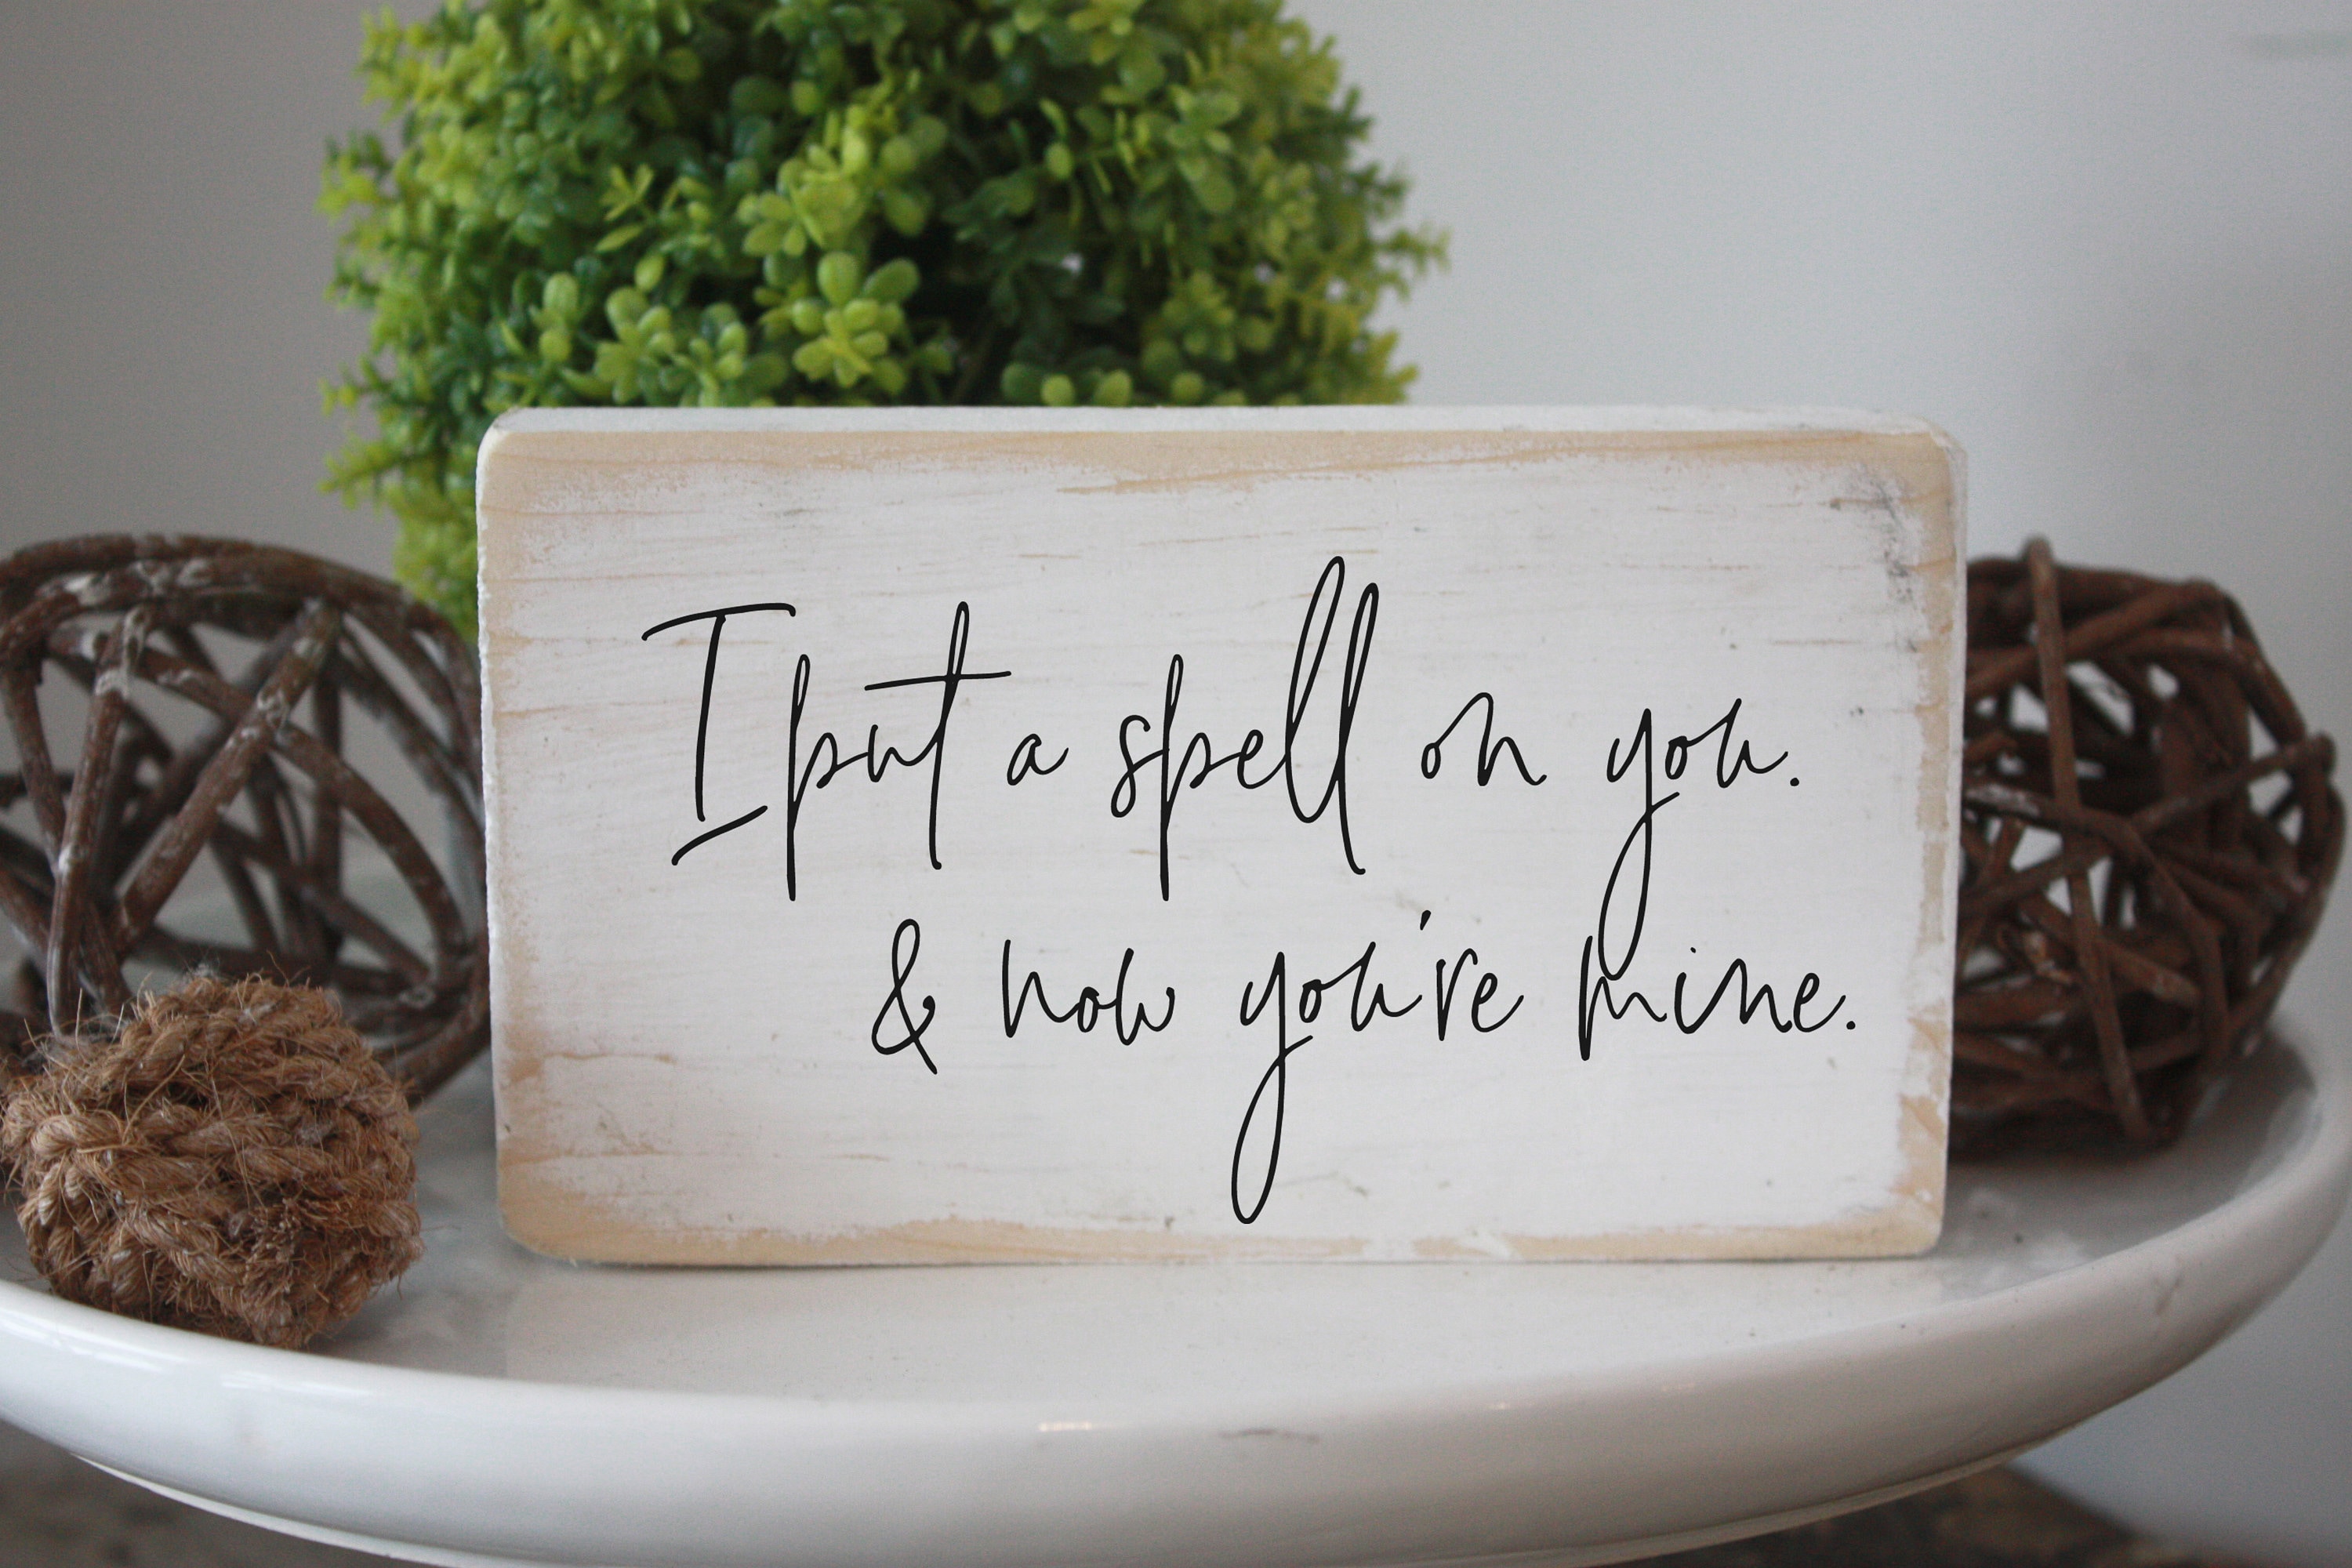 I put a spell on you.
& now you're mine.